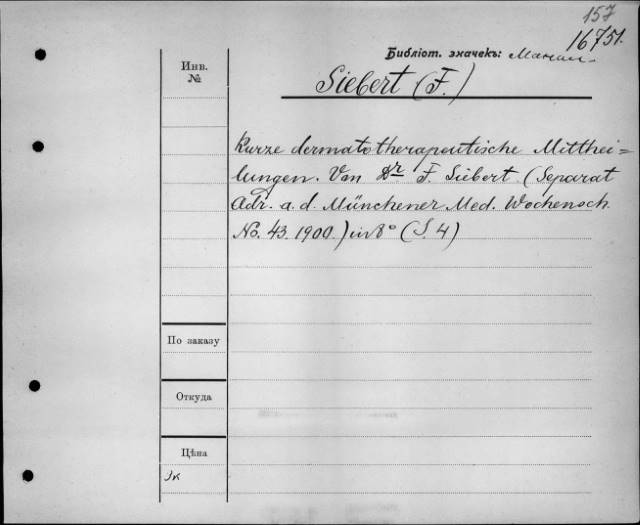 157
16751.
Библіот. значекъ:
Инв.
№
Siebert (F.)
Kurze dermatotherapeutische Mitthei=
lungen. Von Dr F. Siebert (Separat
Adr. a. d. Münchener Med. Wochensch.
No. 43. 1900.) in 8° (S. 4)
По заказу
Откуда
Цѣна